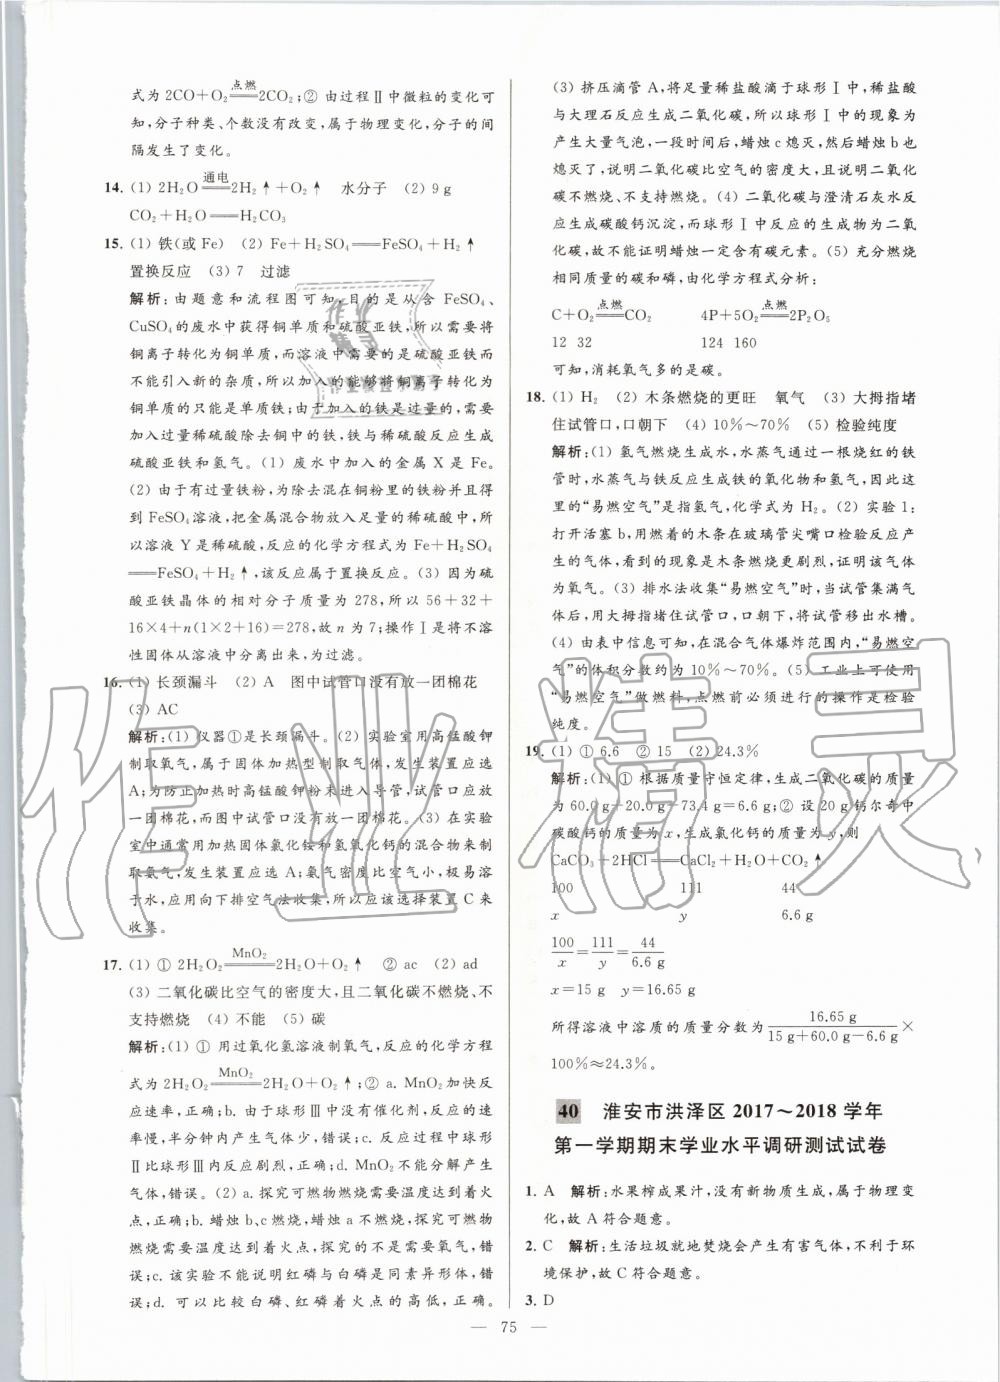 式为 2CO+O₂ 点燃 2CO₂;② 由过程Ⅱ中微粒的变化可
知,分子种类、个数没有改变,属于物理变化,分子的间
隔发生了变化。
14. (1) 2H₂O 通电 2H₂↑+O₂↑ 水分子 (2) 9 g
CO₂+H₂O══H₂CO₃
15. (1) 铁(或 Fe) (2) Fe+H₂SO₄══FeSO₄+H₂↑
置换反应 (3) 7 过滤
解析:由题意和流程图可知,目的是从含 FeSO₄、
CuSO₄的废水中获得铜单质和硫酸亚铁,所以需要将
铜离子转化为铜单质,而溶液中需要的是硫酸亚铁而
不能引入新的杂质,所以加入的将铜离子转化为
铜单质的只能是单质铁;由于加入的铁是过量的,需要
加过量稀硫酸除去铜中的铁,铁与稀硫酸反应生成
硫酸亚铁和氢气。(1) 废水中加入的金属 X 为 Fe。
(2) 由于有过量铁粉,为除去混在铜粉里的铁粉并且得
到 FeSO₄溶液,把金属混合物放入足量的硫酸中,所
以溶液 Y 是稀硫酸,反应的化学方程式为 Fe+H₂SO₄
══FeSO₄+H₂↑,该反应属于置换反应。(3) 因为硫
酸亚铁晶体的相对分子质量为 278,所以 56+32+
16×4+n(1×2+16)=278,故 n 为 7;操作Ⅰ是将不溶
性固体从溶液中分离出来,为过滤。
16. (1) 长颈漏斗 (2) A 图中试管口没有放一团棉花
(3) AC
解析:(1) 仪器①是长颈漏斗。(2) 实验室用高锰酸钾
制取氧气,属于固体加热型制取气体,发生装置应选
A;为防止加热时高锰酸钾粉末进入导管,试管口应放
一团棉花,而图中试管口没有放一团棉花。(3) 在实验
室中通常用加热固体氯化铵和氢氧化钙的混合物来制
取氨气,发生装置应选 A;氨气密度比空气小,极易溶
于水,应用向下排空气法收集,所以应该选择装置 C 来
收集。
17. (1) ① 2H₂O₂ MnO₂ 2H₂O+O₂↑ ② ac (2) ad
(3) 二氧化碳比空气的密度大,且二氧化碳不燃烧、不
支持燃烧 (4) 不能 (5) 碳
解析:(1) ① 用过氧化氢溶液制氧气,反应的化学方程
式为 2H₂O₂ MnO₂ 2H₂O+O₂↑;② a. MnO₂ 加快反
应速率,正确;b. 由于球形Ⅲ中没有催化剂,反应速
率慢,半分钟后才产生少量气体,产生气体少,错误;c. 球形
Ⅱ比球形Ⅲ内反应剧烈,正确;d. MnO₂ 不能分解产生
气体,错误。(2) a. 探究可燃物燃烧需要温度达到着火
点,正确;b. 蜡烛 b、c 燃烧,蜡烛 a 不燃烧,探究可燃物
燃烧需要温度达到着火点,探究的不是需要氧气,错
误;c. 该实验不能说明红磷与白磷是同素异形体,错
误;d. 可以比较白磷、红磷着火点的高低,正确。
(3) 挤压滴管 A,将足量稀盐酸滴于球形Ⅰ中,稀盐酸
与大理石反应生成二氧化碳,球形Ⅰ中的现象为
产生大量气泡,一段时间后,蜡烛 c 熄灭,然后蜡烛 b 也
熄灭,说明二氧化碳比空气的密度大,且说明二氧化碳
不燃烧、不支持燃烧。(4) 二氧化碳与澄清石灰水反
应生成碳酸钙沉淀,而球形Ⅰ中反应的生成物为二氧
化碳,故不能证明蜡烛一定含有碳元素。(5) 充分燃烧
相同质量的碳和磷,由化学方程式分析:
C+O₂ 点燃 CO₂ 4P+5O₂ 点燃 2P₂O₅
12 32 124 160
可知,消耗氧气多的是碳。
18. (1) H₂ (2) 木条燃烧的更旺 氧气 (3) 大拇指堵
住试管口,口朝下 (4) 10%~70% (5) 检验纯度
解析:(1) 氢气燃烧生成水,水蒸气通过一根烧红的铁
管时,水蒸气与铁反应生成铁的氧化物和氢气,因此这
里的“易燃空气”是指氢气,化学式为 H₂。(2) 实验 1:
打开活塞 b,用燃着的木条在玻璃管尖嘴口检验反应产
生的气体,看到的现象是木条燃烧更剧烈,证明该气体
为氧气。(3) 排水法收集“易燃空气”时,当试管集满气
体后,用大拇指堵住试管口,口朝下,将试管移出水槽。
(4) 由表中信息可知,在混合气体爆炸范围内,“易燃空
气”的体积分数约为 10%~70%。(5) 工业上可使用
“易燃空气”做燃料,点燃前必须进行的操作是检验
纯度。
19. (1) ① 6.6 ② 15 (2) 24.3%
解析:(1) ① 根据质量守恒定律,生成二氧化碳的质量
为 60.0 g+20.0 g−73.4 g=6.6 g;② 设 20 g 钙尔奇中
碳酸钙的质量为 x,生成氯化钙的质量为 y,则
CaCO₃+2HCl══CaCl₂+H₂O+CO₂↑
100 111 44
x y 6.6 g
100/x=111/y=44/6.6 g
x=15 g y=16.65 g
所得溶液中溶质的质量分数为 16.65 g/(15 g+60.0 g−6.6 g)×
100%≈24.3%。
40 淮安市洪泽区 2017~2018 学年
第一学期期末学业水平调研测试试卷
1. A 解析:水果榨成果汁,没有新物质生成,属于物理变
化,故 A 符合题意。
2. C 解析:生活垃圾就地焚烧会产生有害气体,不利于环
境保护,故 C 符合题意。
3. D
— 75 —
作业精灵